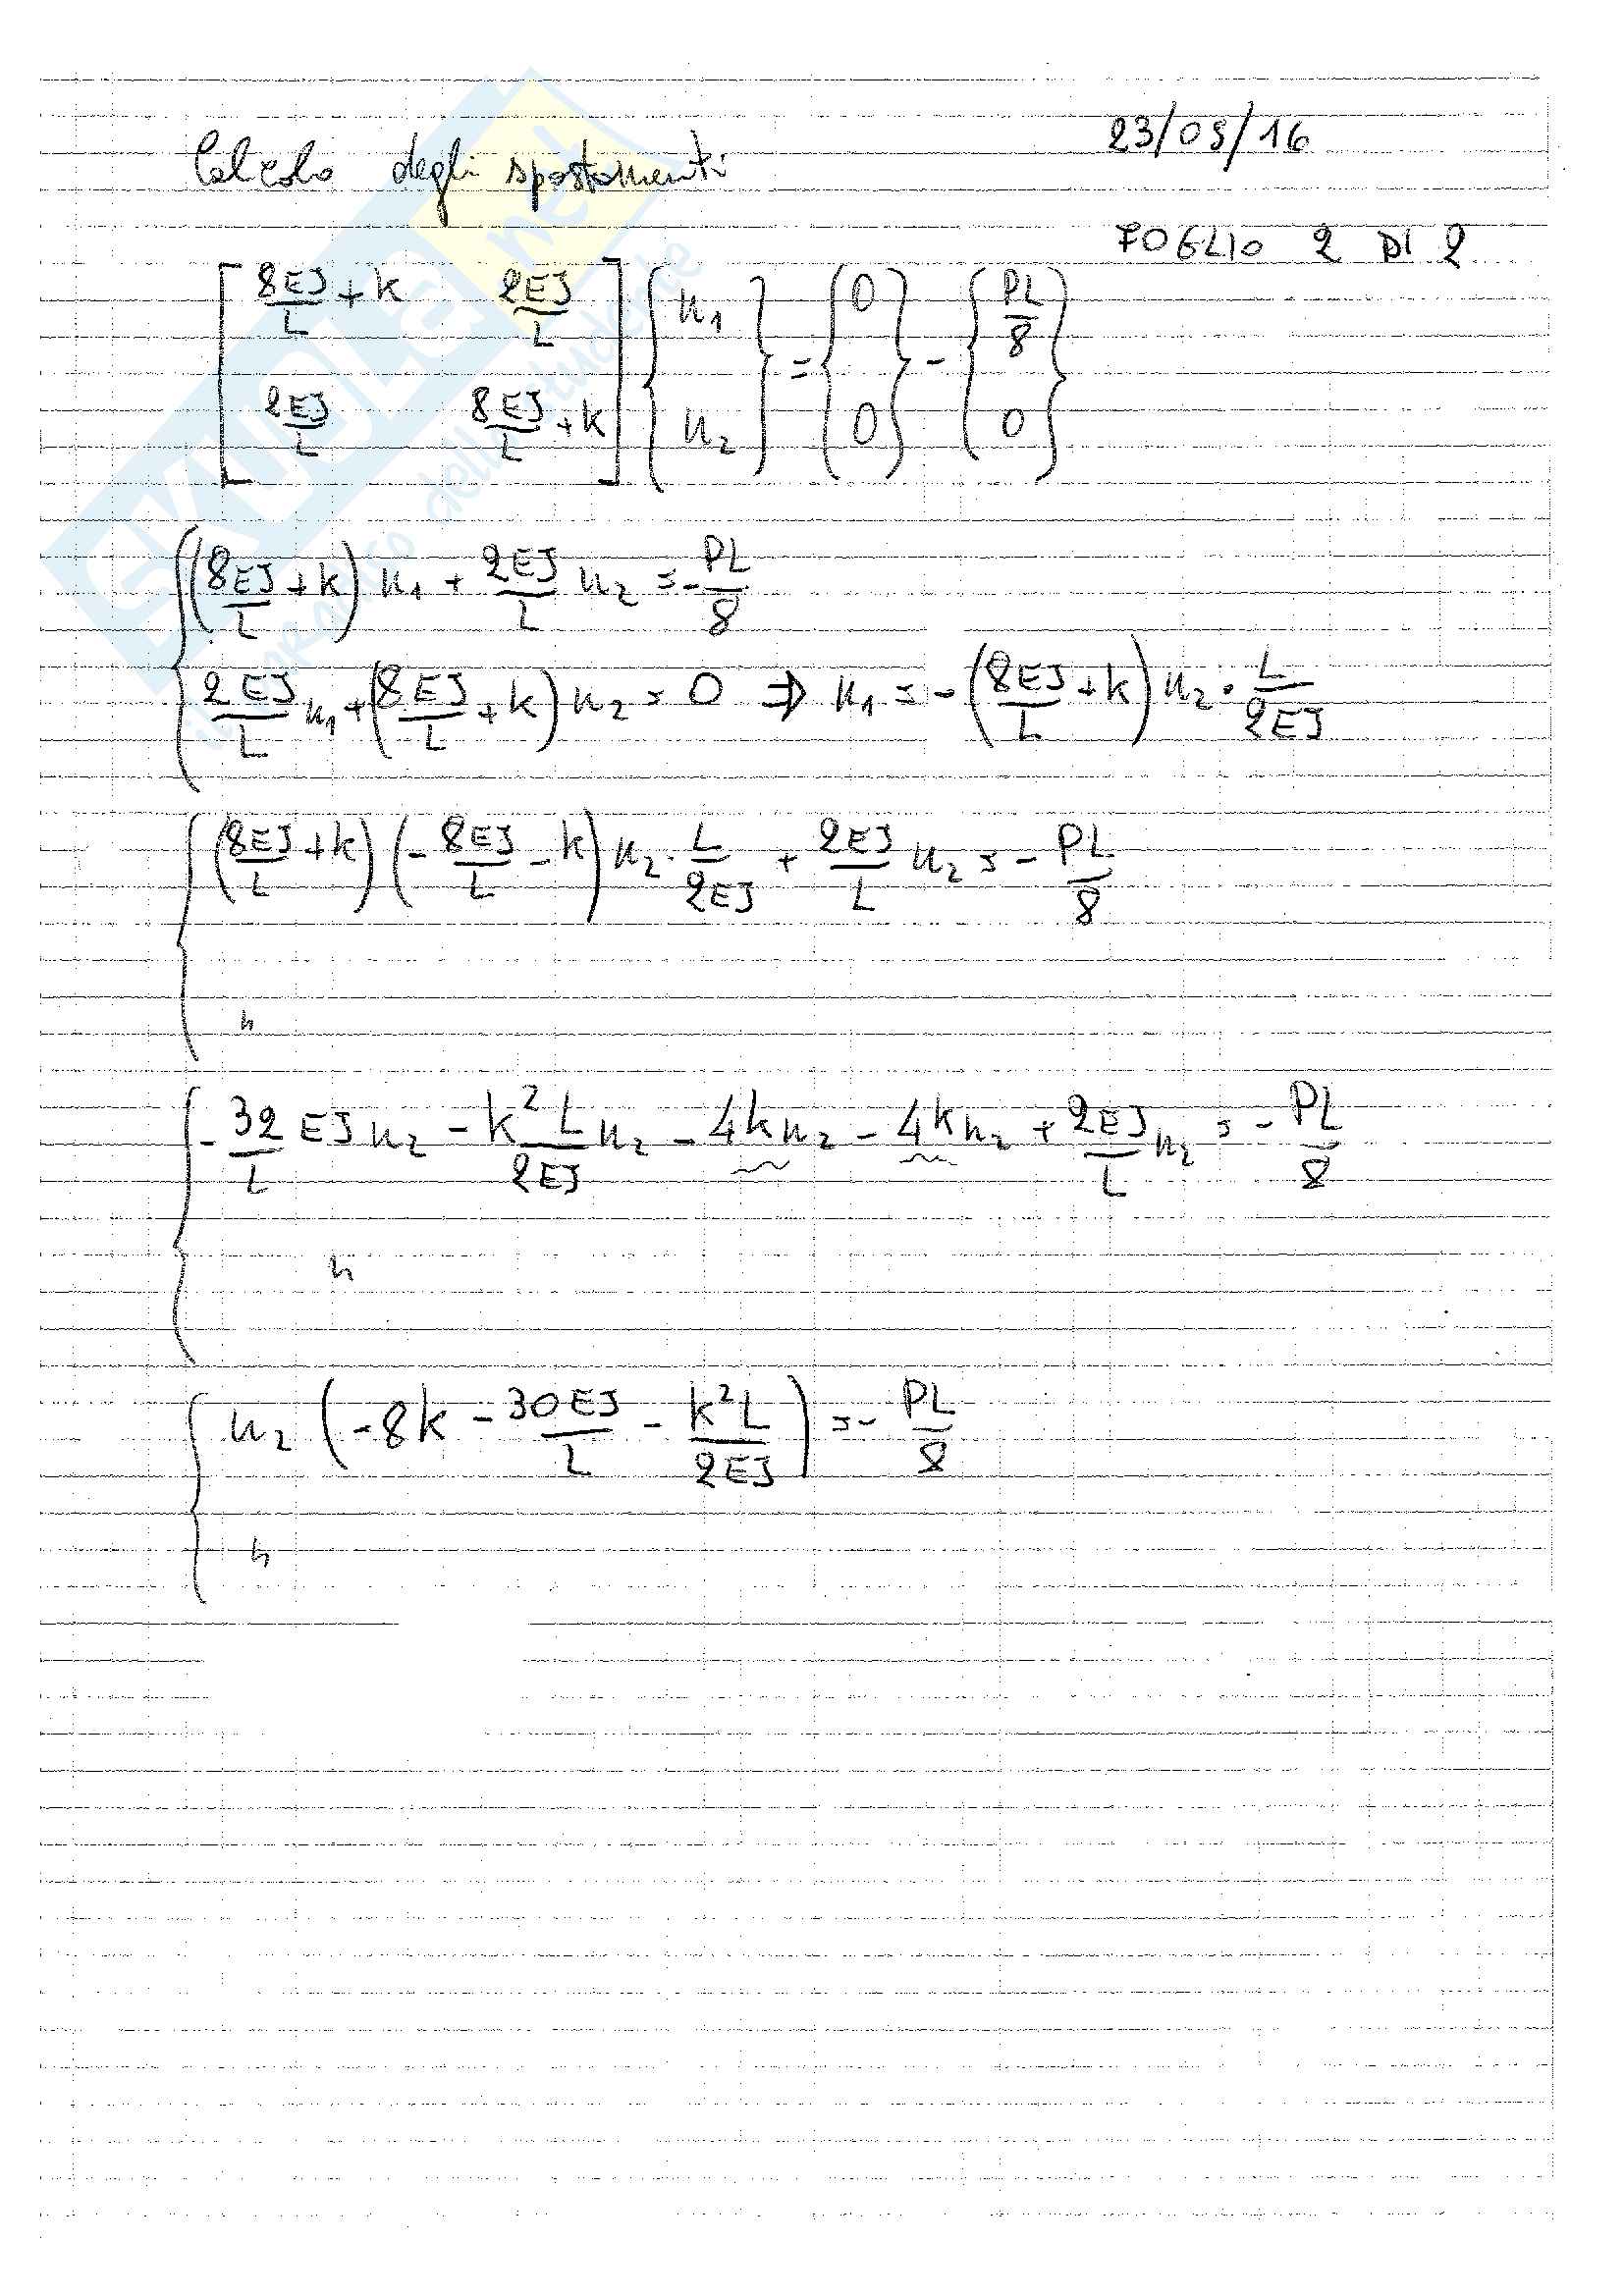 Calcolo degli spostamenti
23/09/16
FOGLIO 2 DI 2
[ 8EJ/L + k   2EJ/L ; 2EJ/L   8EJ/L + k ] { u₁ ; u₂ } = { 0 ; 0 } - { PL/8 ; 0 }
{ (8EJ/L + k) u₁ + 2EJ/L u₂ = - PL/8
2EJ/L u₁ + (8EJ/L + k) u₂ = 0 ⇒ u₁ = - (8EJ/L + k) u₂ · L/2EJ
{ (8EJ/L + k) (- 8EJ/L - k) u₂ · L/2EJ + 2EJ/L u₂ = - PL/8
"
{ - 32/L EJ u₂ - k² L/2EJ u₂ - 4k u₂ - 4k u₂ + 2EJ/L u₂ = - PL/8
"
{ u₂ (-8k - 30EJ/L - k²L/2EJ) = - PL/8
"